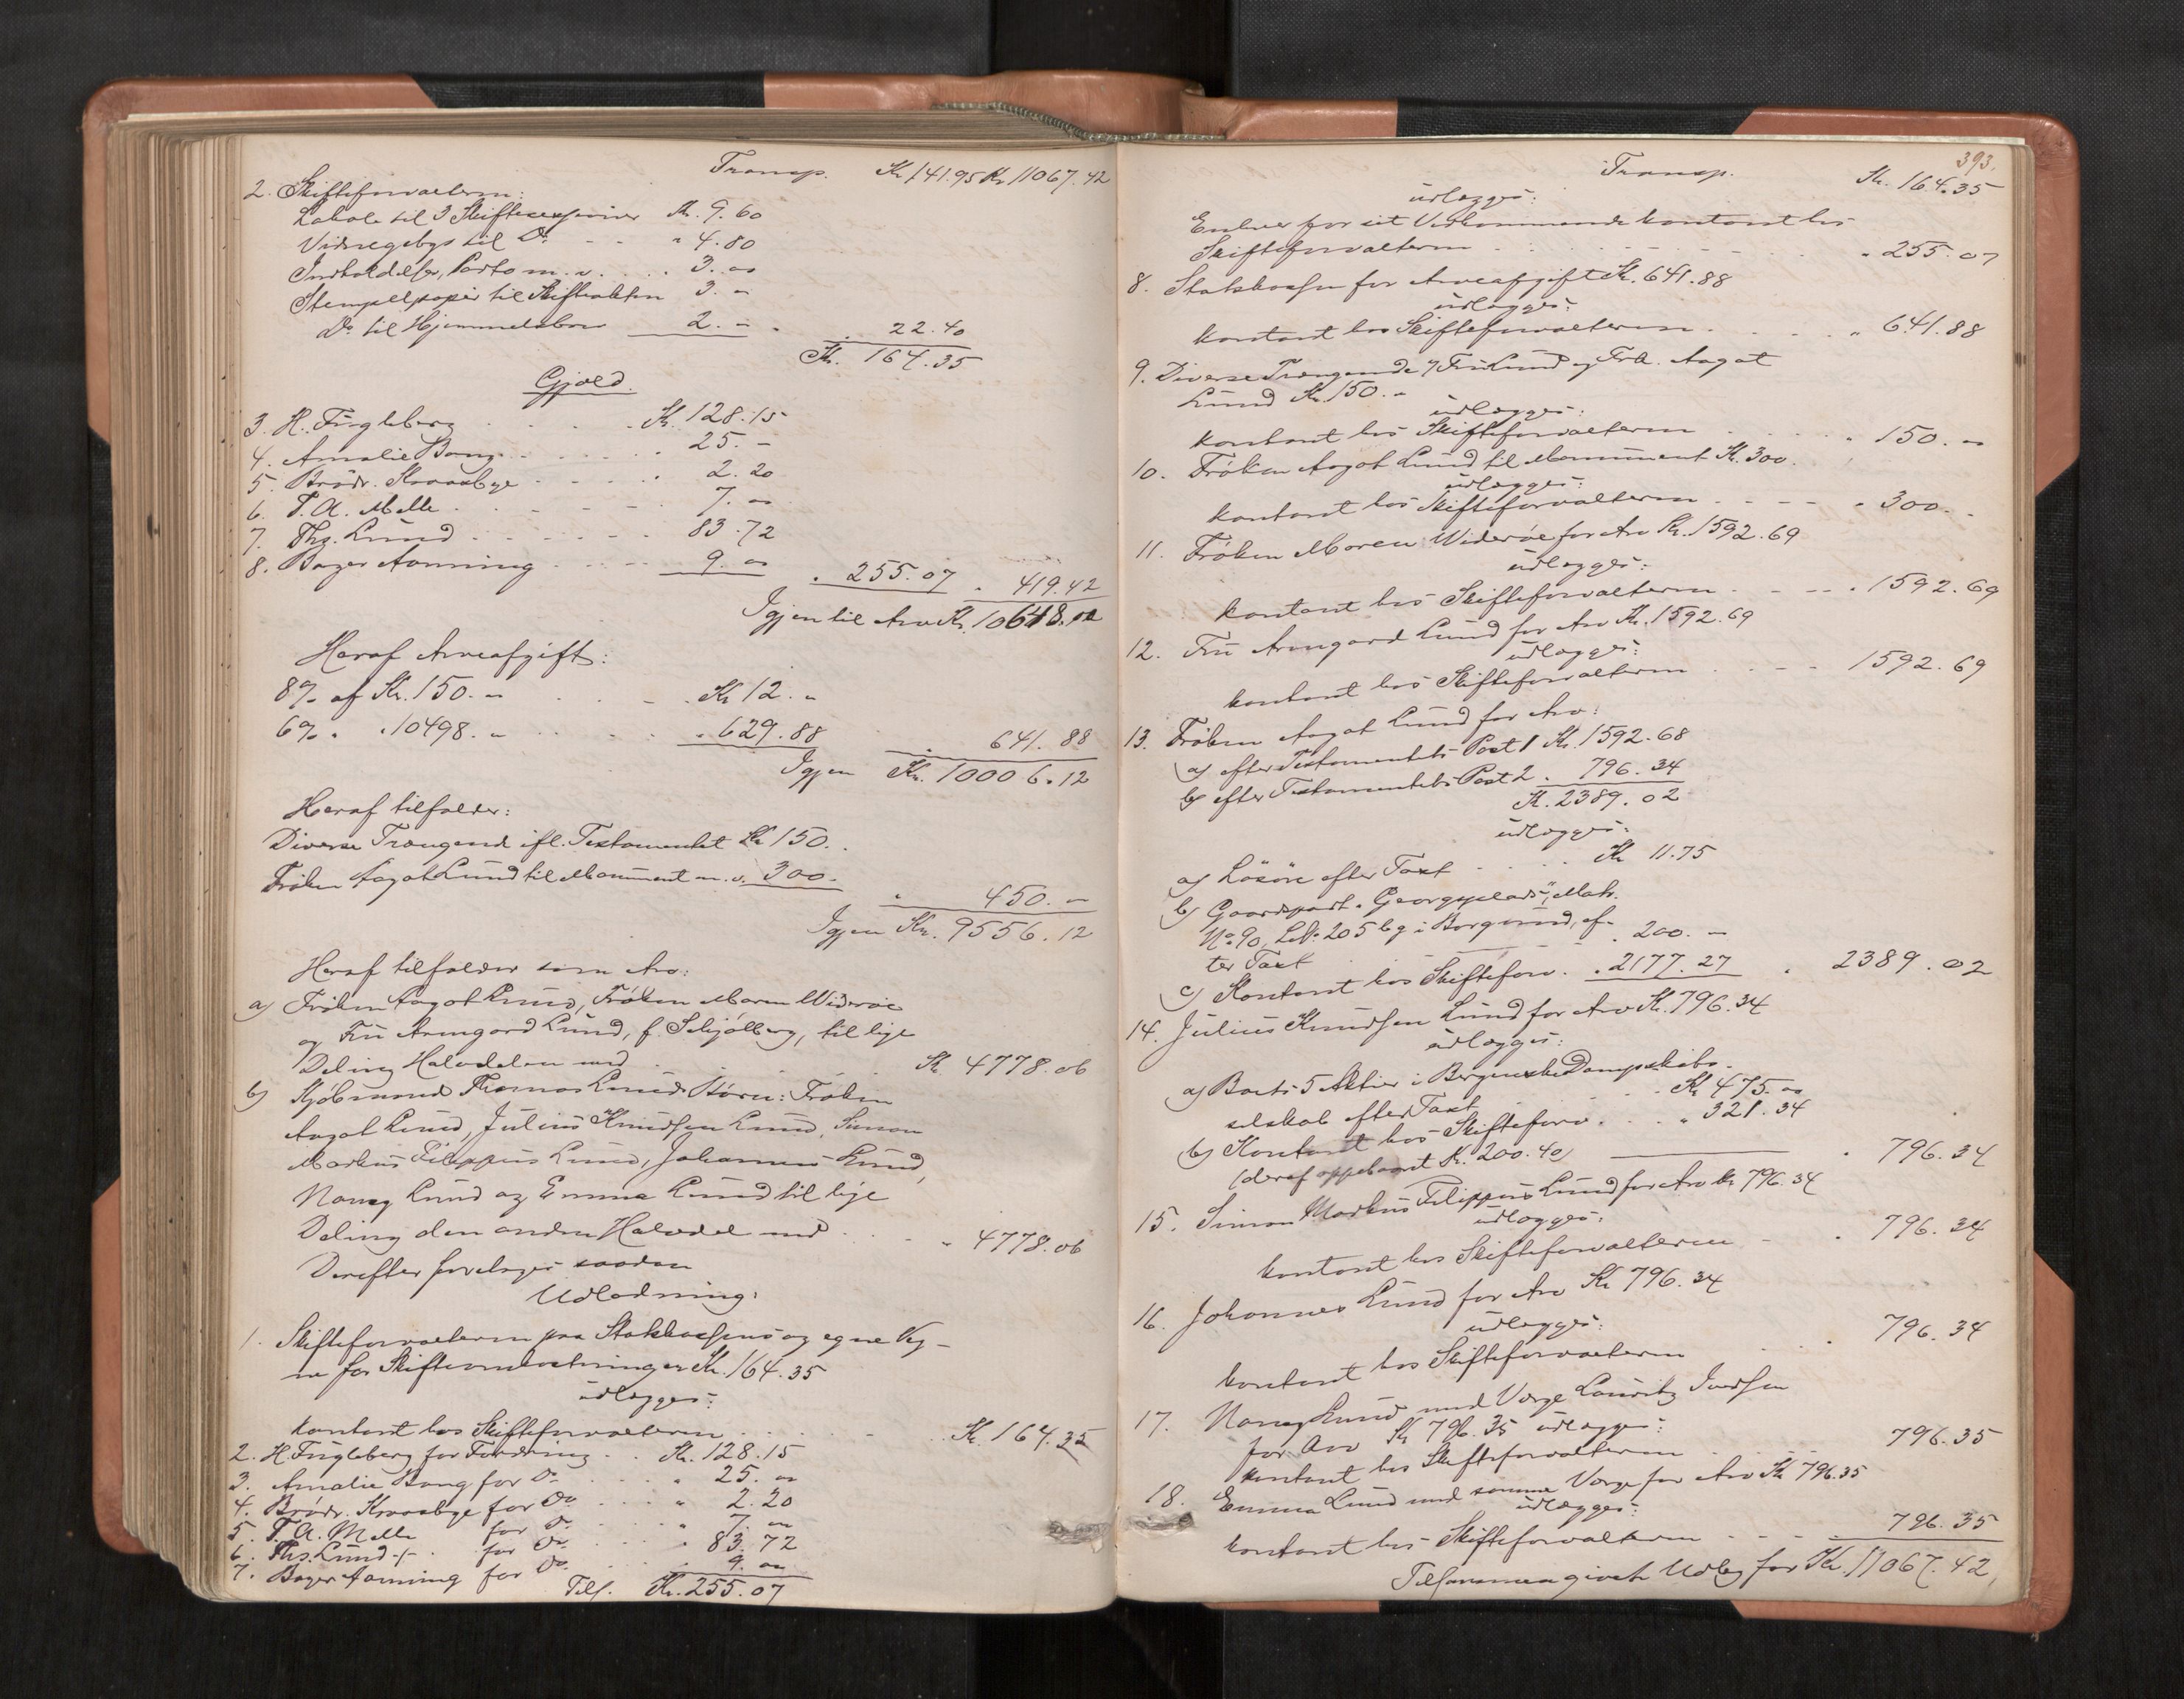 Transp. Kr. 141.95 Kr. 11067.42
2. Skifteforvalteren:
Lokale til 3 Skiftesessioner Kr. 9.60
Vidnegebyr til Do - - " 4.80
Indkaldelser, Porto m. v. . . . 3. "
Stempelpapir til Skifteakten 3. "
Do til Hjemmelsbrev 2. " . 22.40
Kr. 164.35
Gjæld.
3. H. Fugleberg . . . . Kr. 128.15
4. Amalie Bang . . . . . 25. "
5. Brødr. Kroasbye . . . . 2.20
6. T. A. Melle . . . . . 7. "
7. Ths. Lund . . . . . . 83.72
8. Bager Aanning . . . . 9. " . 255.07 " 419.42
Igjen til Arv Kr. 10648.00
Heraf Arveafgift:
8% af Kr. 150. " . . . Kr 12. "
6% " " 10498. " . . . " 629.88 . 641.88
Igjen Kr. 10006.12
Heraf tilfalder:
Diverse Trængende ifl. Testamentet Kr 150.
Frøken Aagot Lund til Monument m. v. 300. " 450. "
Igjen Kr. 9556.12
Heraf tilfalder som Arv:
a) Frøken Aagot Lund, Frøken Maren Widerøe
og Fru Armgard Lund, f. Schjølberg, til lige
Deling Halvdelen med . . . Kr 4778.06
b) Kjøbmand Thomas Lunds Børn: Frøken
Aagot Lund, Julius Knudsen Lund, Simon
Markus Filippus Lund, Johannes Lund,
Nanny Lund og Emma Lund til lige
Deling den anden Halvdel med . . . " 4778.06
Derefter foretages saadan
Udlodning:
1. Skifteforvalteren paa Statskassens og egne Veg-
ne for Skifteomkostninger Kr. 164.35
udlægges:
kontant hos Skifteforvalteren . . . Kr. 164.35
2. H. Fugleberg for Fordring . . Kr. 128.15
3. Amalie Bang for Do . . " 25. "
4. Brødr. Kroasbye for Do . . " 2.20
5. T. A. Melle for Do . . " 7. "
6. Ths. Lund for Do . . 83.72
7. Bager Aanning for Do . . 9. "
Tils. Kr. 255.07
393.
Transp. Kr. 164.35
udlægges:
Enhver for sit Vedkommende kontant hos
Skifteforvalteren . . . " 255.07
8. Statskassen for Arveafgift Kr. 641.88
udlægges:
kontant hos Skifteforvalteren . . . " 641.88
9. Diverse Trængende Fru Lund og Frk. Aagot
Lund Kr. 150. "
udlægges:
kontant hos Skifteforvalteren . . . " 150. "
10. Frøken Aagot Lund til Monument Kr. 300.
udlægges:
kontant hos Skifteforvalteren . . . " 300. "
11. Frøken Maren Widerøe for Arv Kr. 1592.69
udlægges:
kontant hos Skifteforvalteren . . . " 1592.69
12. Fru Armgard Lund for Arv Kr. 1592.69
udlægges:
kontant hos Skifteforvalteren . . . 1592.69
13. Frøken Aagot Lund for Arv:
a) efter Testamentets Post 1 Kr. 1592.68
b) efter Testamentets Post 2 . 796.34
Kr. 2389.02
udlægges:
a) Løsøre efter Taxt . . . Kr 11.75
b) Gaardpart "Georgsplads", Matr.
No. 90, Lbr. 205 bg i Borgund, ef-
ter Taxt . 200. "
c) Kontant hos Skifteforv. . . 2177.27 . 2389.02
14. Julius Knudsen Lund for Arv Kr. 796.34
udlægges:
a) Boets 5 Aktier i Bergenske Dampskibs-
selskab efter Taxt . . . Kr 475. "
b) Kontant hos Skifteforv. . . . " 321.34
(deraf oppebaaret Kr. 200.40) . 796.34
15. Simon Markus Filippus Lund for Arv Kr 796.34
udlægges:
kontant hos Skifteforvalteren . . 796.34
16. Johannes Lund for Arv Kr 796.34
udlægges:
kontant hos Skifteforvalteren . . 796.34
17. Nanny Lund med Verge Lauritz Iversen
for Arv Kr 796.35 udlægges:
kontant hos Skifteforvalteren . . . 796.35
18. Emma Lund med samme Verge for Arv Kr 796.35
udlægges:
kontant hos Skifteforvalteren . . . 796.35
Tilsammen givet Udlæg for Kr. 11067.42